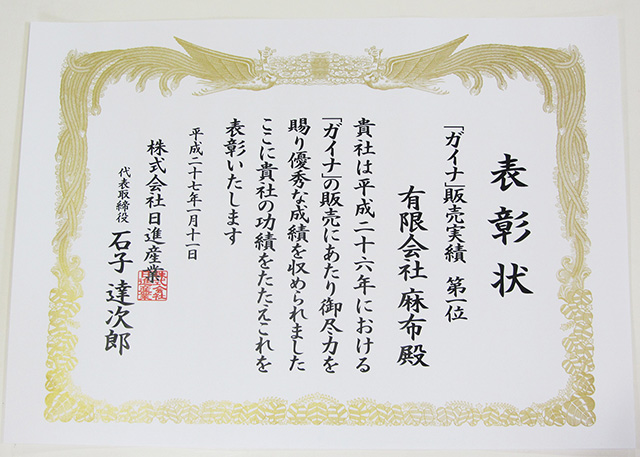 表彰状
「ガイナ」販売実績 第一位
有限会社 麻布 殿
貴社は平成二十六年における
「ガイナ」の販売にあたり御尽力を
賜り優秀な成績を収められました
ここに貴社の功績をたたえこれを
表彰いたします
平成二十七年一月十一日
株式会社日進産業
代表取締役 石子 達次郎
株式会社日進産業